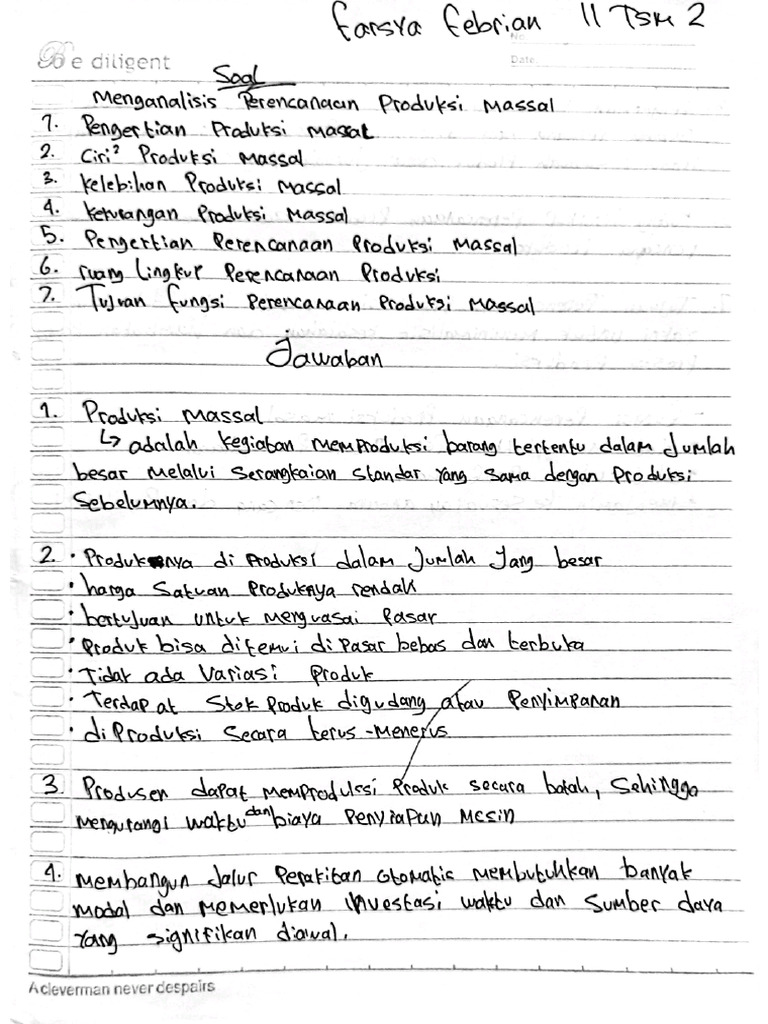 Farsya Febrian 11 TSM 2
Be diligent
No.
Date.
Soal
Menganalisis Perencanaan Produksi Massal
1. Pengertian Produksi massal
2. Ciri² Produksi Massal
3. Kelebihan Produksi Massal
4. Kekurangan Produksi Massal
5. Pengertian Perencanaan Produksi Massal
6. ruang lingkup Perencanaan Produksi
7. Tujuan fungsi Perencanaan Produksi Massal
Jawaban
1. Produksi Massal
↳ adalah kegiatan memproduksi barang tertentu dalam Jumlah
besar melalui serangkaian standar yang sama dengan Produksi
Sebelumnya.
2. • Produknya di Produksi dalam Jumlah yang besar
• harga Satuan Produknya rendah
• bertujuan untuk menguasai Pasar
• Produk bisa ditemui di Pasar bebas dan terbuka
• Tidak ada Variasi Produk
• Terdapat Stok Produk digudang atau Penyimpanan
• di Produksi Secara terus-Menerus
3. Produsen dapat memproduksi Produk secara batah, Sehingga
mengurangi waktu dan biaya Penyiapan Mesin
4. Membangun Jalur Perakitan Otomatic membutuhkan banyak
modal dan memerlukan investasi waktu dan Sumber daya
Yang signifikan diawal.
A cleverman never despairs